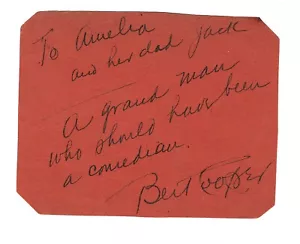 To Amelia
and her dad Jack
A grand man
who should have been
a comedian.
Bert